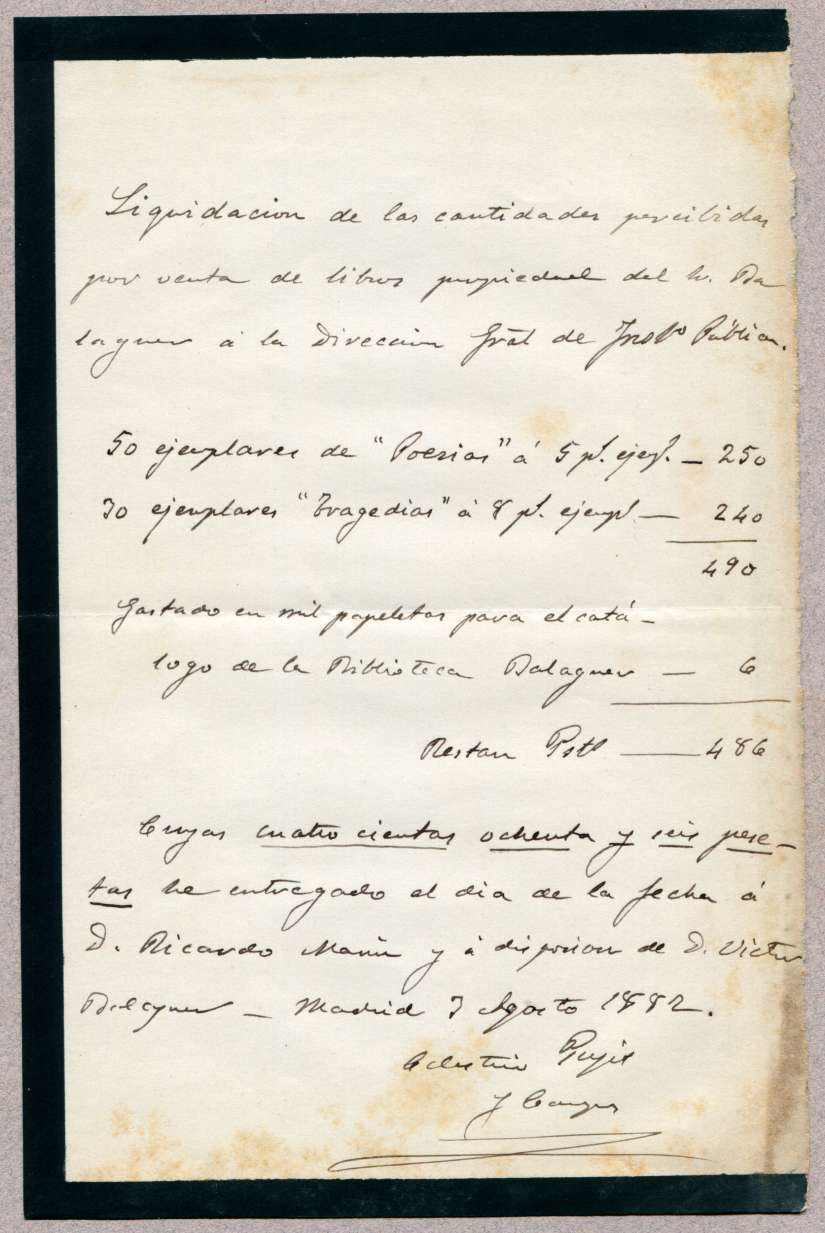 Liquidacion de las cantidades percibidas
por venta de libros propiedad del Sr. Ba
laguer á la Direccion Gral de Pública.
50 ejemplares de "Poesias" á 5 pts. ejempl. — 250
30 ejemplares "Tragedias" á 8 pts. ejempl. — 240
490
Gastado en mil papeletas para el catá-
logo de la Biblioteca Balaguer — 6
Restan Pts — 486
Cuyas cuatro cientas ochenta y seis pese-
tas he entregado el dia de la fecha á
D. Ricardo y á disposicion de D. Victor
Balaguer — Madrid 3 Agosto 1882.
Celestino Pujol
y Camps